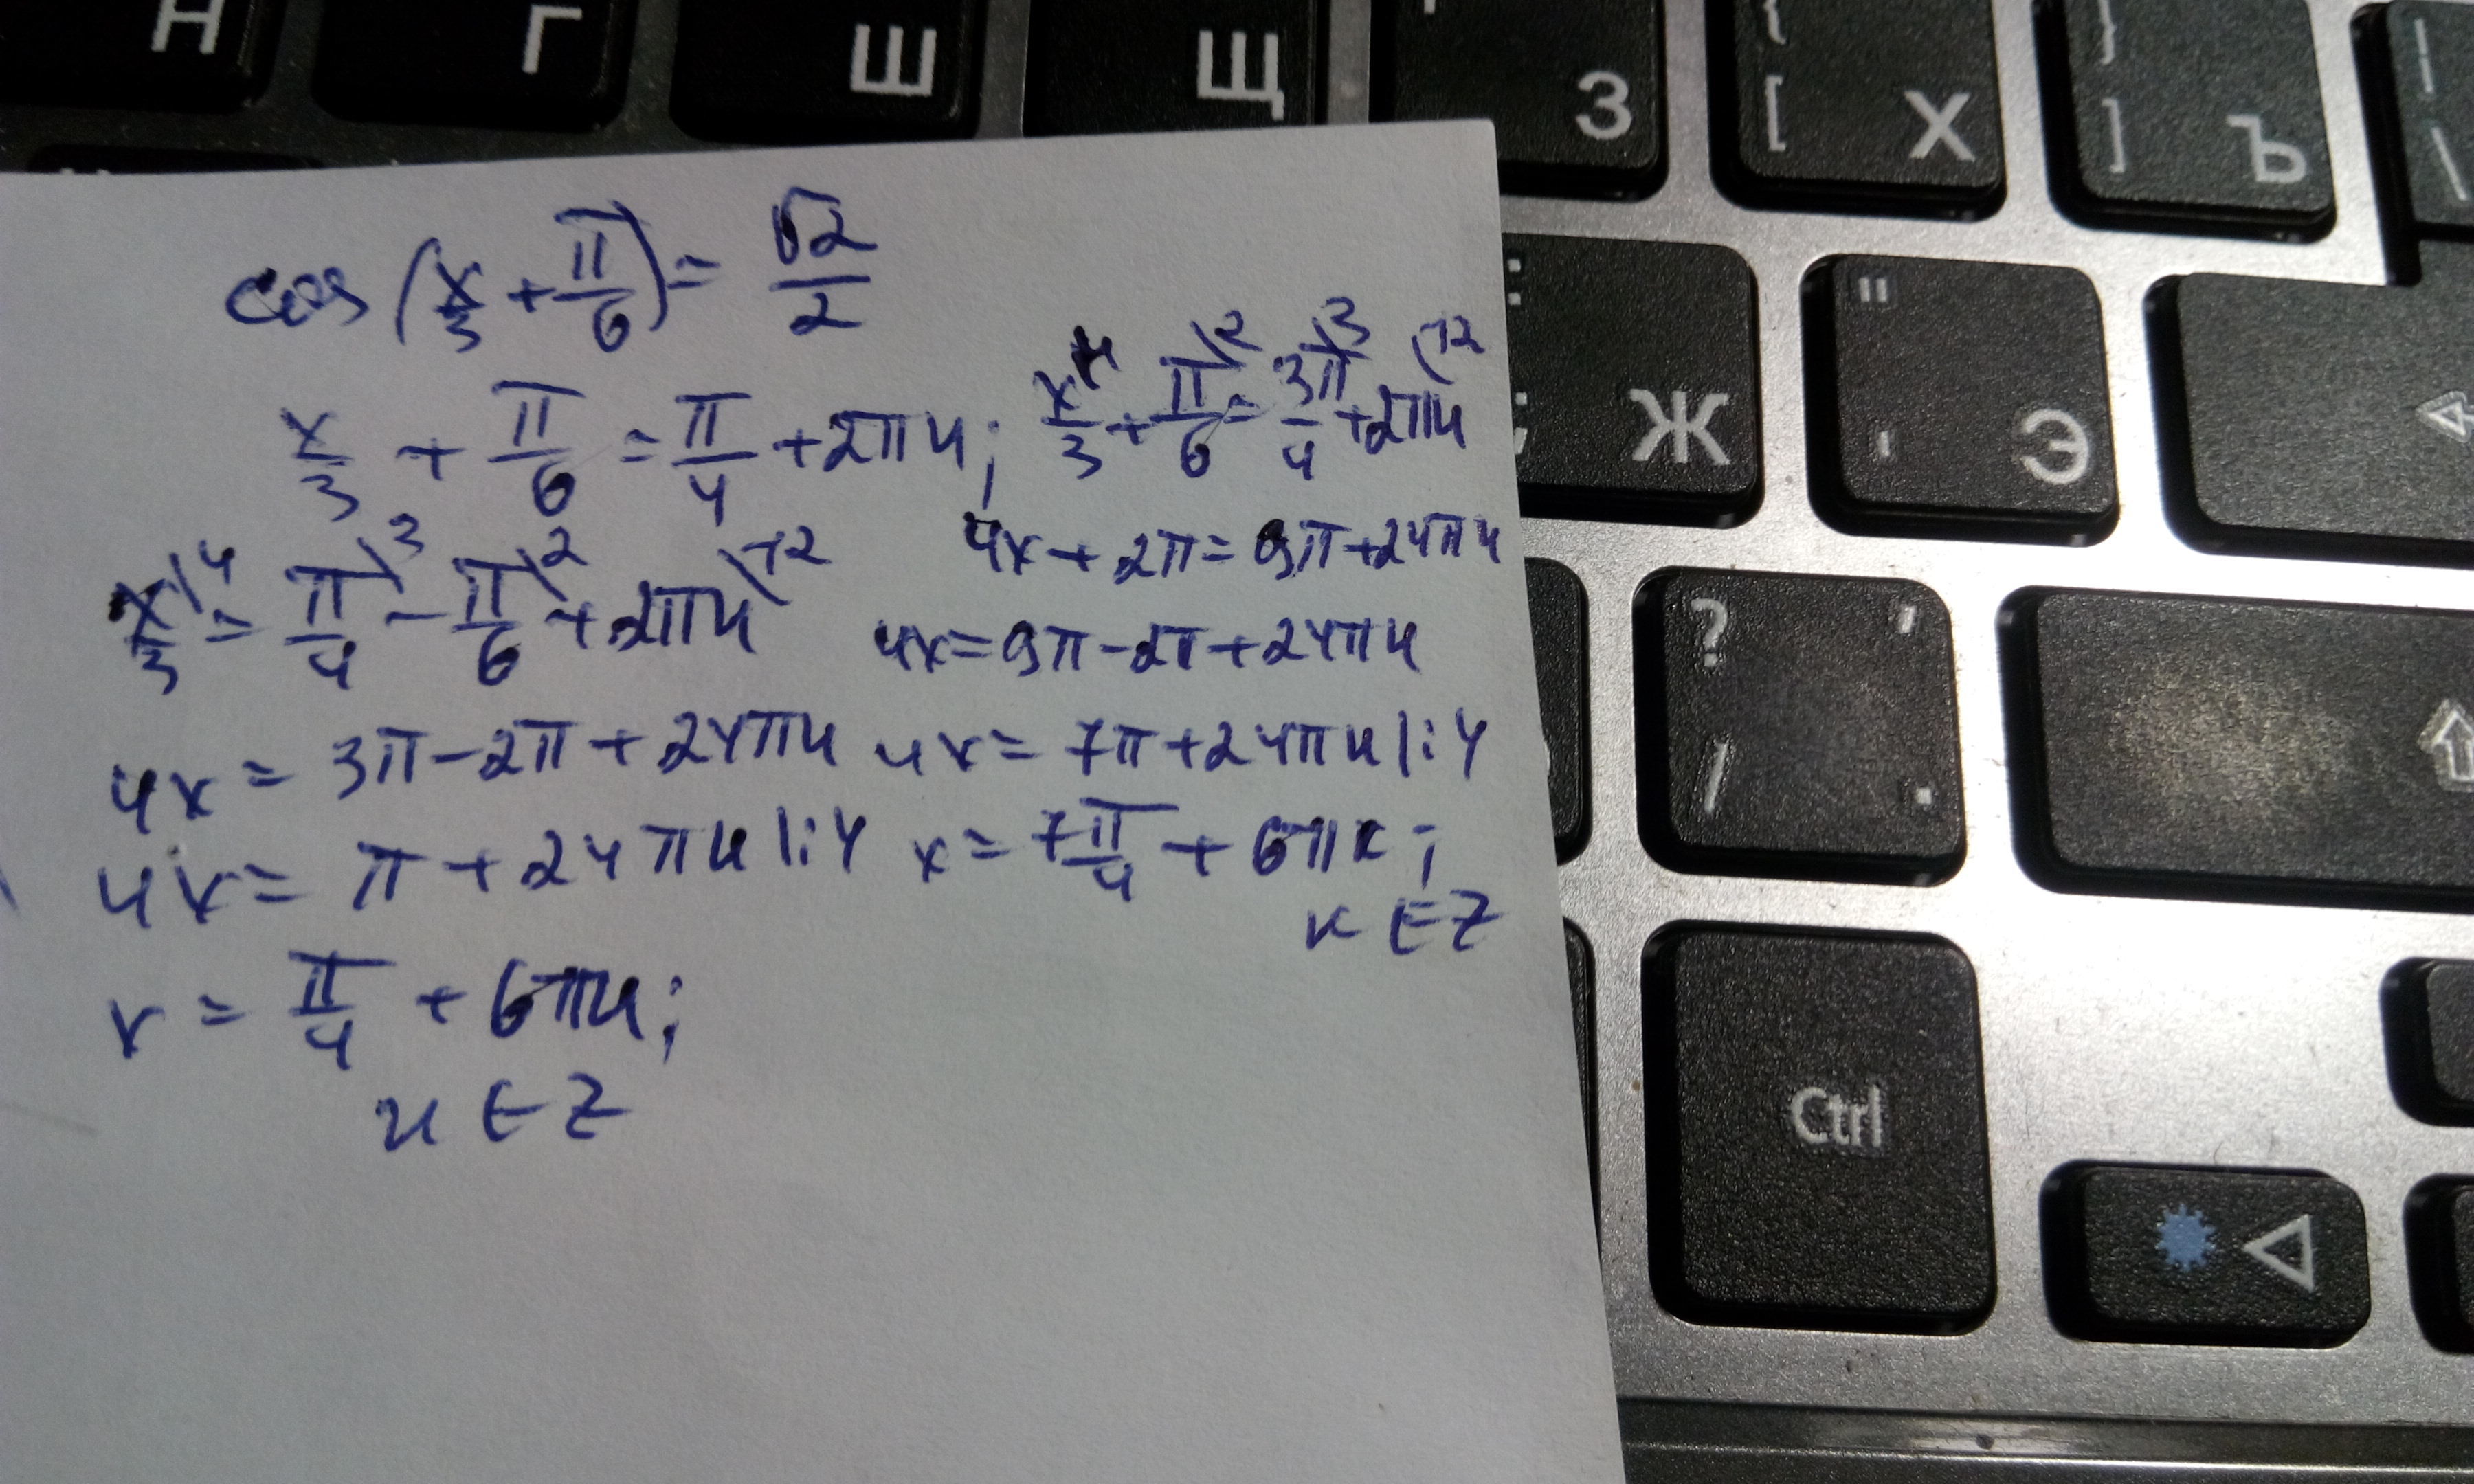 Н Г Ш Щ З { [ Х } ] Ъ | \
cos(x/3 + π/6) = √2/2
x/3 + π/6 = π/4 + 2πn; x/3\4 + π/6\2 = 3π/4\3 + 2πn\12
x/3\4 = π/4\3 − π/6\2 + 2πn\12
4x + 2π = 9π + 24πn
4x = 9π − 2π + 24πn
4x = 3π − 2π + 24πn
4x = 7π + 24πn |:4
4x = π + 24πn |:4
x = 7π/4 + 6πк;
к ∈ Z
x = π/4 + 6πn;
n ∈ Z
: ; Ж " ' Э
? / , .
Ctrl